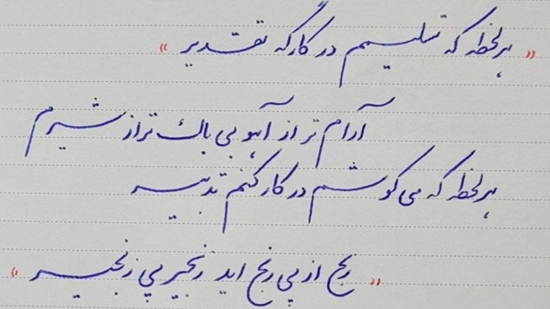 «هر لحظه که تسلیمم در کارگه تقدیر»
آرام تر از آهو بی باک تر از شیرم
هر لحظه که می کوشم در کار کنم تدبیر
«رنج از پی رنج آید زنجیر پی زنجیر»